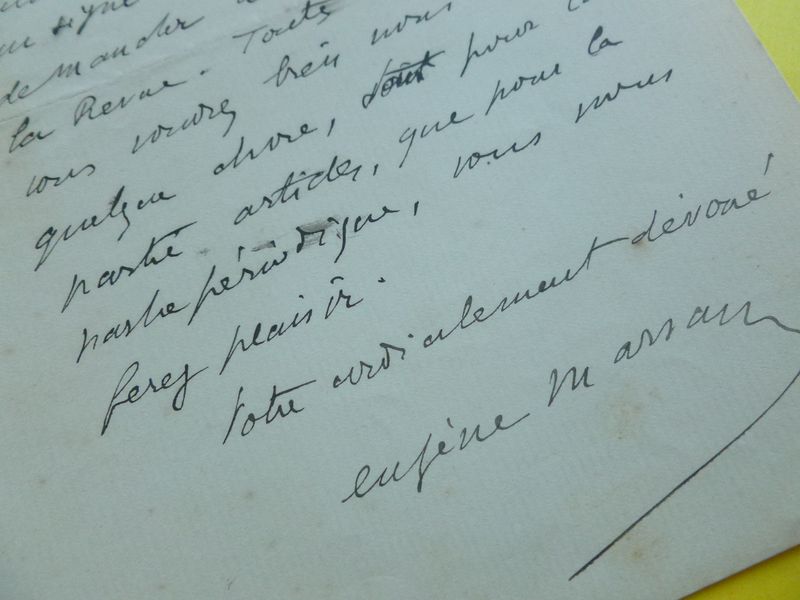 un signe
demander
la Revue. Toute
vous voudrez bien nous
quelque chose, tout pour la
partie articles, que pour la
partie périodique, vous nous
ferez plaisir.
Votre cordialement dévoué
eugène Marsan